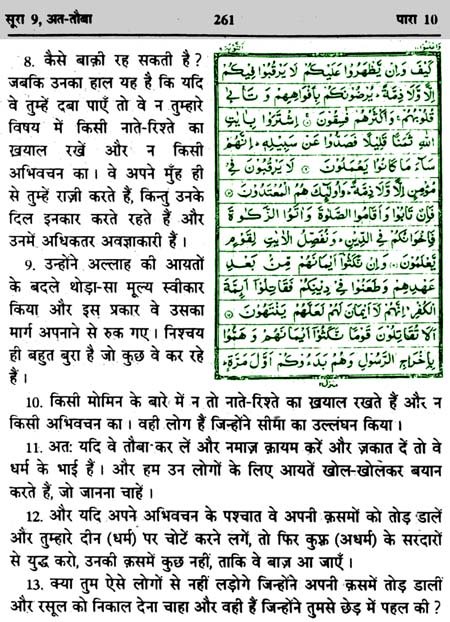 सूरा 9, अत-तौबा 261 पारा 10
8. कैसे बाक़ी रह सकती है ?
जबकि उनका हाल यह है कि यदि
वे तुम्हें दबा पाएँ तो वे न तुम्हारे
विषय में किसी नाते-रिश्ते का
ख़याल रखें और न किसी
अभिवचन का। वे अपने मुँह ही
से तुम्हें राज़ी करते हैं, किन्तु उनके
दिल इनकार करते रहते हैं और
उनमें अधिकतर अवज्ञाकारी हैं।
9. उन्होंने अल्लाह की आयतों
के बदले थोड़ा-सा मूल्य स्वीकार
किया और इस प्रकार वे उसका
मार्ग अपनाने से रुक गए। निश्चय
ही बहुत बुरा है जो कुछ वे कर रहे
हैं।
كَيْفَ وَإِنْ يَّظْهَرُوْا عَلَيْكُمْ لَا يَرْقُبُوْا فِيْكُمْ
إِلًّا وَّلَا ذِمَّةً ۚ يُرْضُوْنَكُمْ بِأَفْوَاهِهِمْ وَتَأْبٰى
قُلُوْبُهُمْ ۚ وَأَكْثَرُهُمْ فٰسِقُوْنَ ۞ اِشْتَرَوْا بِاٰيٰتِ
اللهِ ثَمَنًا قَلِيْلًا فَصَدُّوْا عَنْ سَبِيْلِهٖ ۚ إِنَّهُمْ
سَآءَ مَا كَانُوْا يَعْمَلُوْنَ ۞ لَا يَرْقُبُوْنَ فِيْ
مُؤْمِنٍ إِلًّا وَّلَا ذِمَّةً ۚ وَأُولٰٓئِكَ هُمُ الْمُعْتَدُوْنَ ۞
فَإِنْ تَابُوْا وَأَقَامُوا الصَّلٰوةَ وَاٰتَوُا الزَّكٰوةَ
فَإِخْوَانُكُمْ فِي الدِّيْنِ ۚ وَنُفَصِّلُ الْاٰيٰتِ لِقَوْمٍ
يَّعْلَمُوْنَ ۞ وَإِنْ نَّكَثُوْٓا أَيْمَانَهُمْ مِّنْ بَعْدِ
عَهْدِهِمْ وَطَعَنُوْا فِيْ دِيْنِكُمْ فَقَاتِلُوْٓا أَئِمَّةَ
الْكُفْرِ ۙ إِنَّهُمْ لَآ أَيْمَانَ لَهُمْ لَعَلَّهُمْ يَنْتَهُوْنَ ۞
أَلَا تُقَاتِلُوْنَ قَوْمًا نَّكَثُوْٓا أَيْمَانَهُمْ وَهَمُّوْا
بِإِخْرَاجِ الرَّسُوْلِ وَهُمْ بَدَءُوْكُمْ أَوَّلَ مَرَّةٍ ۚ
10. किसी मोमिन के बारे में न तो नाते-रिश्ते का ख़याल रखते हैं और न
किसी अभिवचन का। वही लोग हैं जिन्होंने सीमा का उल्लंघन किया।
11. अतः यदि वे तौबा कर लें और नमाज़ क़ायम करें और ज़कात दें तो वे
धर्म के भाई हैं। और हम उन लोगों के लिए आयतें खोल-खोलकर बयान
करते हैं, जो जानना चाहें।
12. और यदि अपने अभिवचन के पश्चात वे अपनी क़समों को तोड़ डालें
और तुम्हारे दीन (धर्म) पर चोटें करने लगें, तो फिर कुफ़्र (अधर्म) के सरदारों
से युद्ध करो, उनकी क़समें कुछ नहीं, ताकि वे बाज़ आ जाएँ।
13. क्या तुम ऐसे लोगों से नहीं लड़ोगे जिन्होंने अपनी क़समें तोड़ डालीं
और रसूल को निकाल देना चाहा और वही हैं जिन्होंने तुमसे छेड़ में पहल की ?